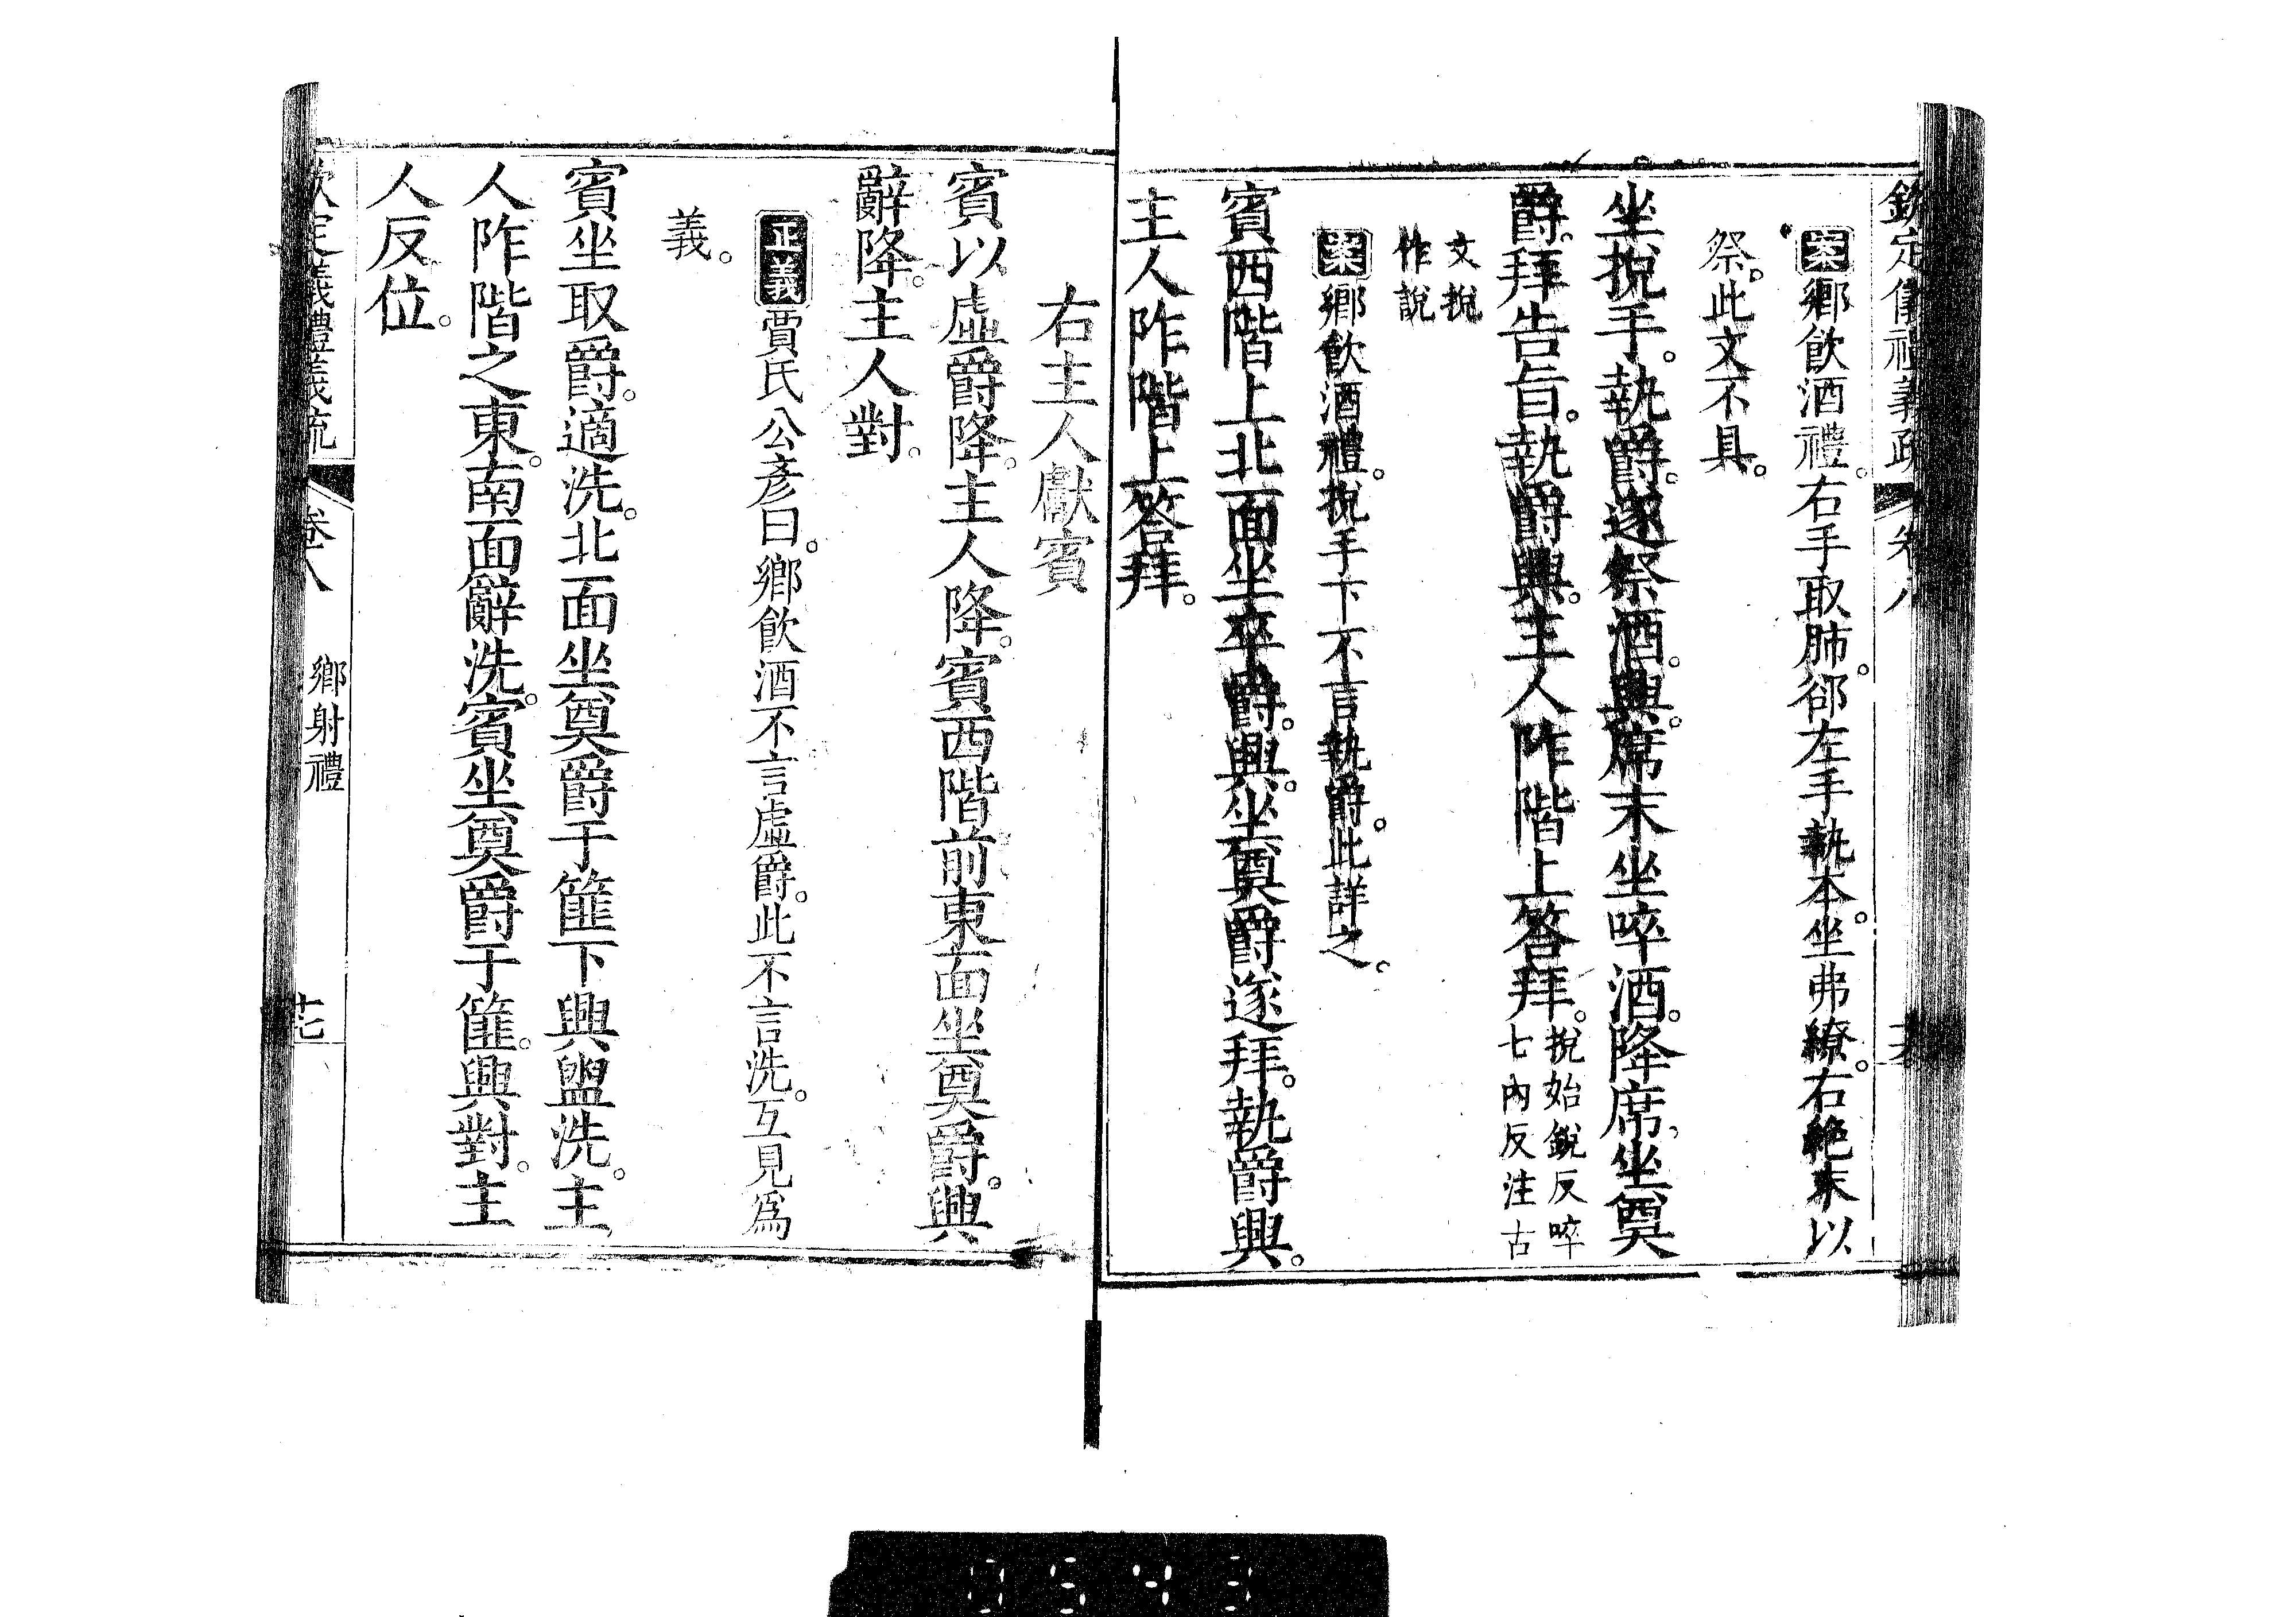 欽定儀禮義疏 卷八
案鄉飲酒禮。右手取肺。郤左手執本。坐弗繚。右絶末以
祭。此文不具。
坐挩手。執爵。遂祭酒。興。席末坐啐酒。降席。坐奠
爵。拜告旨。執爵興。主人阼階上答拜。挩始銳反啐
七內反注古
文挩
作說
案鄉飲酒禮。挩手下不言執爵。此詳之。
賓西階上北面坐卒爵。興。坐奠爵。遂拜。執爵興。
主人阼階上答拜。
右主人獻賓
賓以虛爵降。主人降。賓西階前東面坐奠爵。興
辭降。主人對。
正義賈氏公彥曰。鄉飲酒不言虛爵。此不言洗。互見爲
義。
賓坐取爵。適洗。北面坐奠爵于篚下。興盥洗。主
人阼階之東。南面辭洗。賓坐奠爵于篚。興對。主
人反位。
欽定儀禮義疏 卷八 鄉射禮 十七